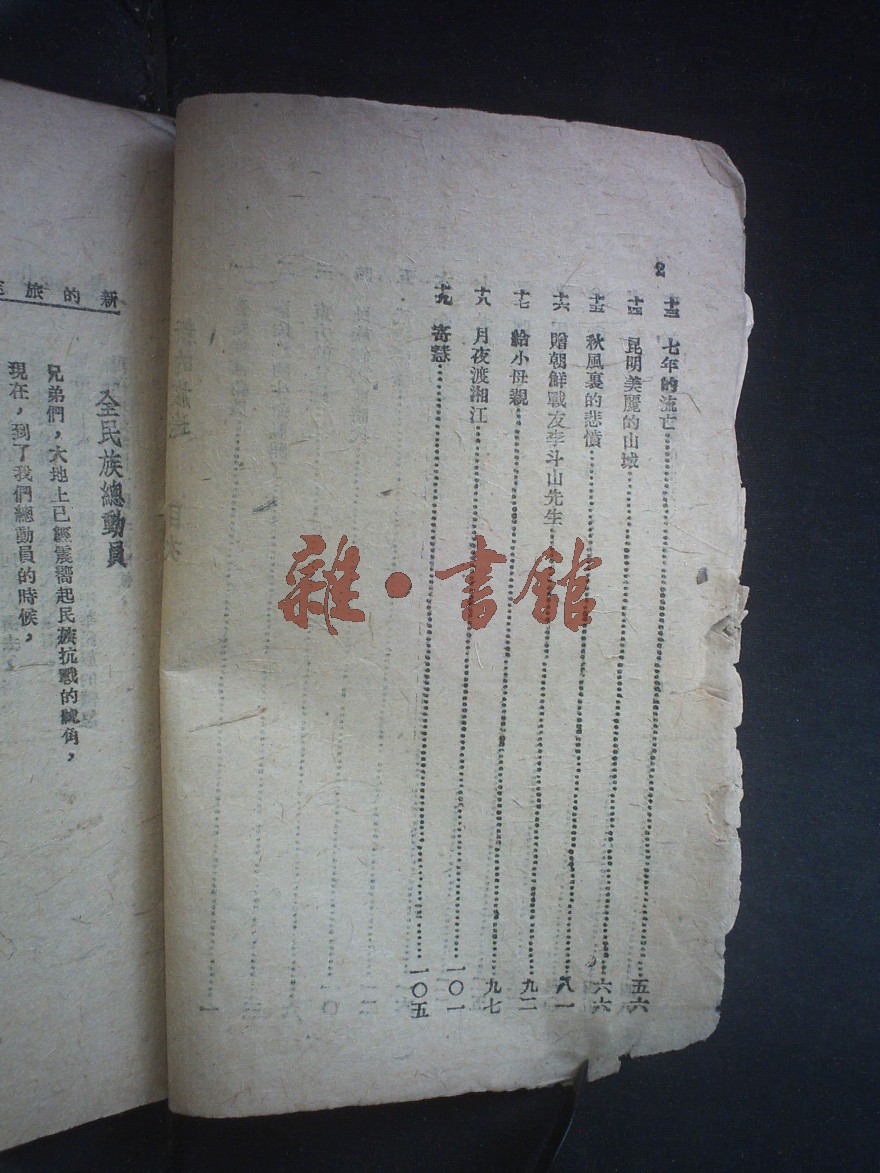 2
十三 七年的流亡……五六
十四 昆明美麗的山城……六六
十五 秋風裏的悲憤……八一
十六 贈朝鮮戰友李斗山先生……九二
十七 給小母親……九七
十八 月夜渡湘江……一〇一
十九 寄慧……一〇五
雜·書館
新的旅
全民族總動員
兄弟們,大地上已經震嚮起民族抗戰的號角,
現在,到了我們總動員的時候,